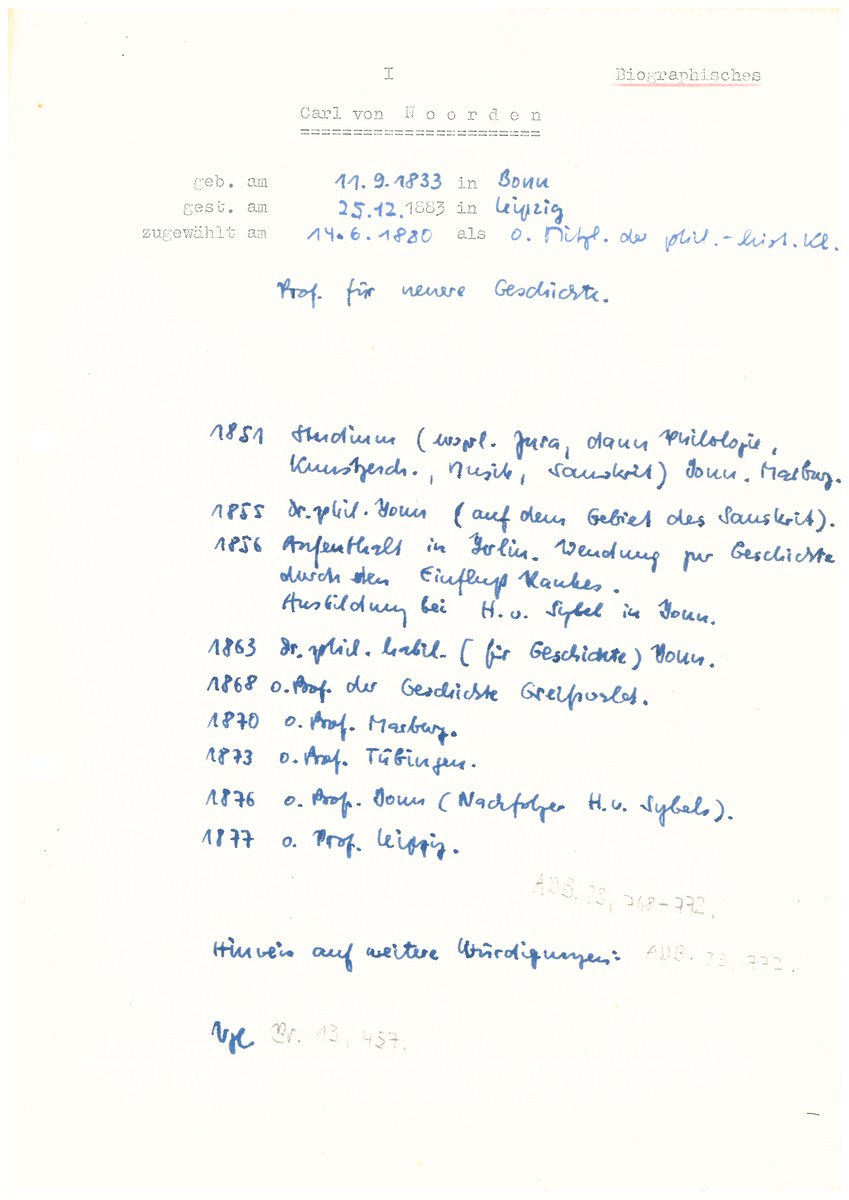 I
Biographisches
Carl von Noorden
=======================
geb. am 11.9.1833 in Bonn
gest. am 25.12.1883 in Leipzig
zugewählt am 14.6.1880 als o. Mitgl. der phil.-hist. Kl.
Prof. für neuere Geschichte.
1851 Studium (urspl. Jura, dann Philologie,
Kunstgesch., Musik, Sanskrit) Bonn. Marburg.
1855 Dr. phil. Bonn (auf dem Gebiet des Sanskrit).
1856 Aufenthalt in Berlin. Wendung zur Geschichte
durch den Einfluß Rankes.
Ausbildung bei H. v. Sybel in Bonn.
1863 Dr. phil. habil. (für Geschichte) Bonn.
1868 o. Prof. der Geschichte Greifswald.
1870 o. Prof. Marburg.
1873 o. Prof. Tübingen.
1876 o. Prof. Bonn (Nachfolger H. v. Sybels).
1877 o. Prof. Leipzig.
ADB. 23, 768-772.
Hinweis auf weitere Würdigungen: ADB. 23, 772.
Vgl. Br. 13, 457.